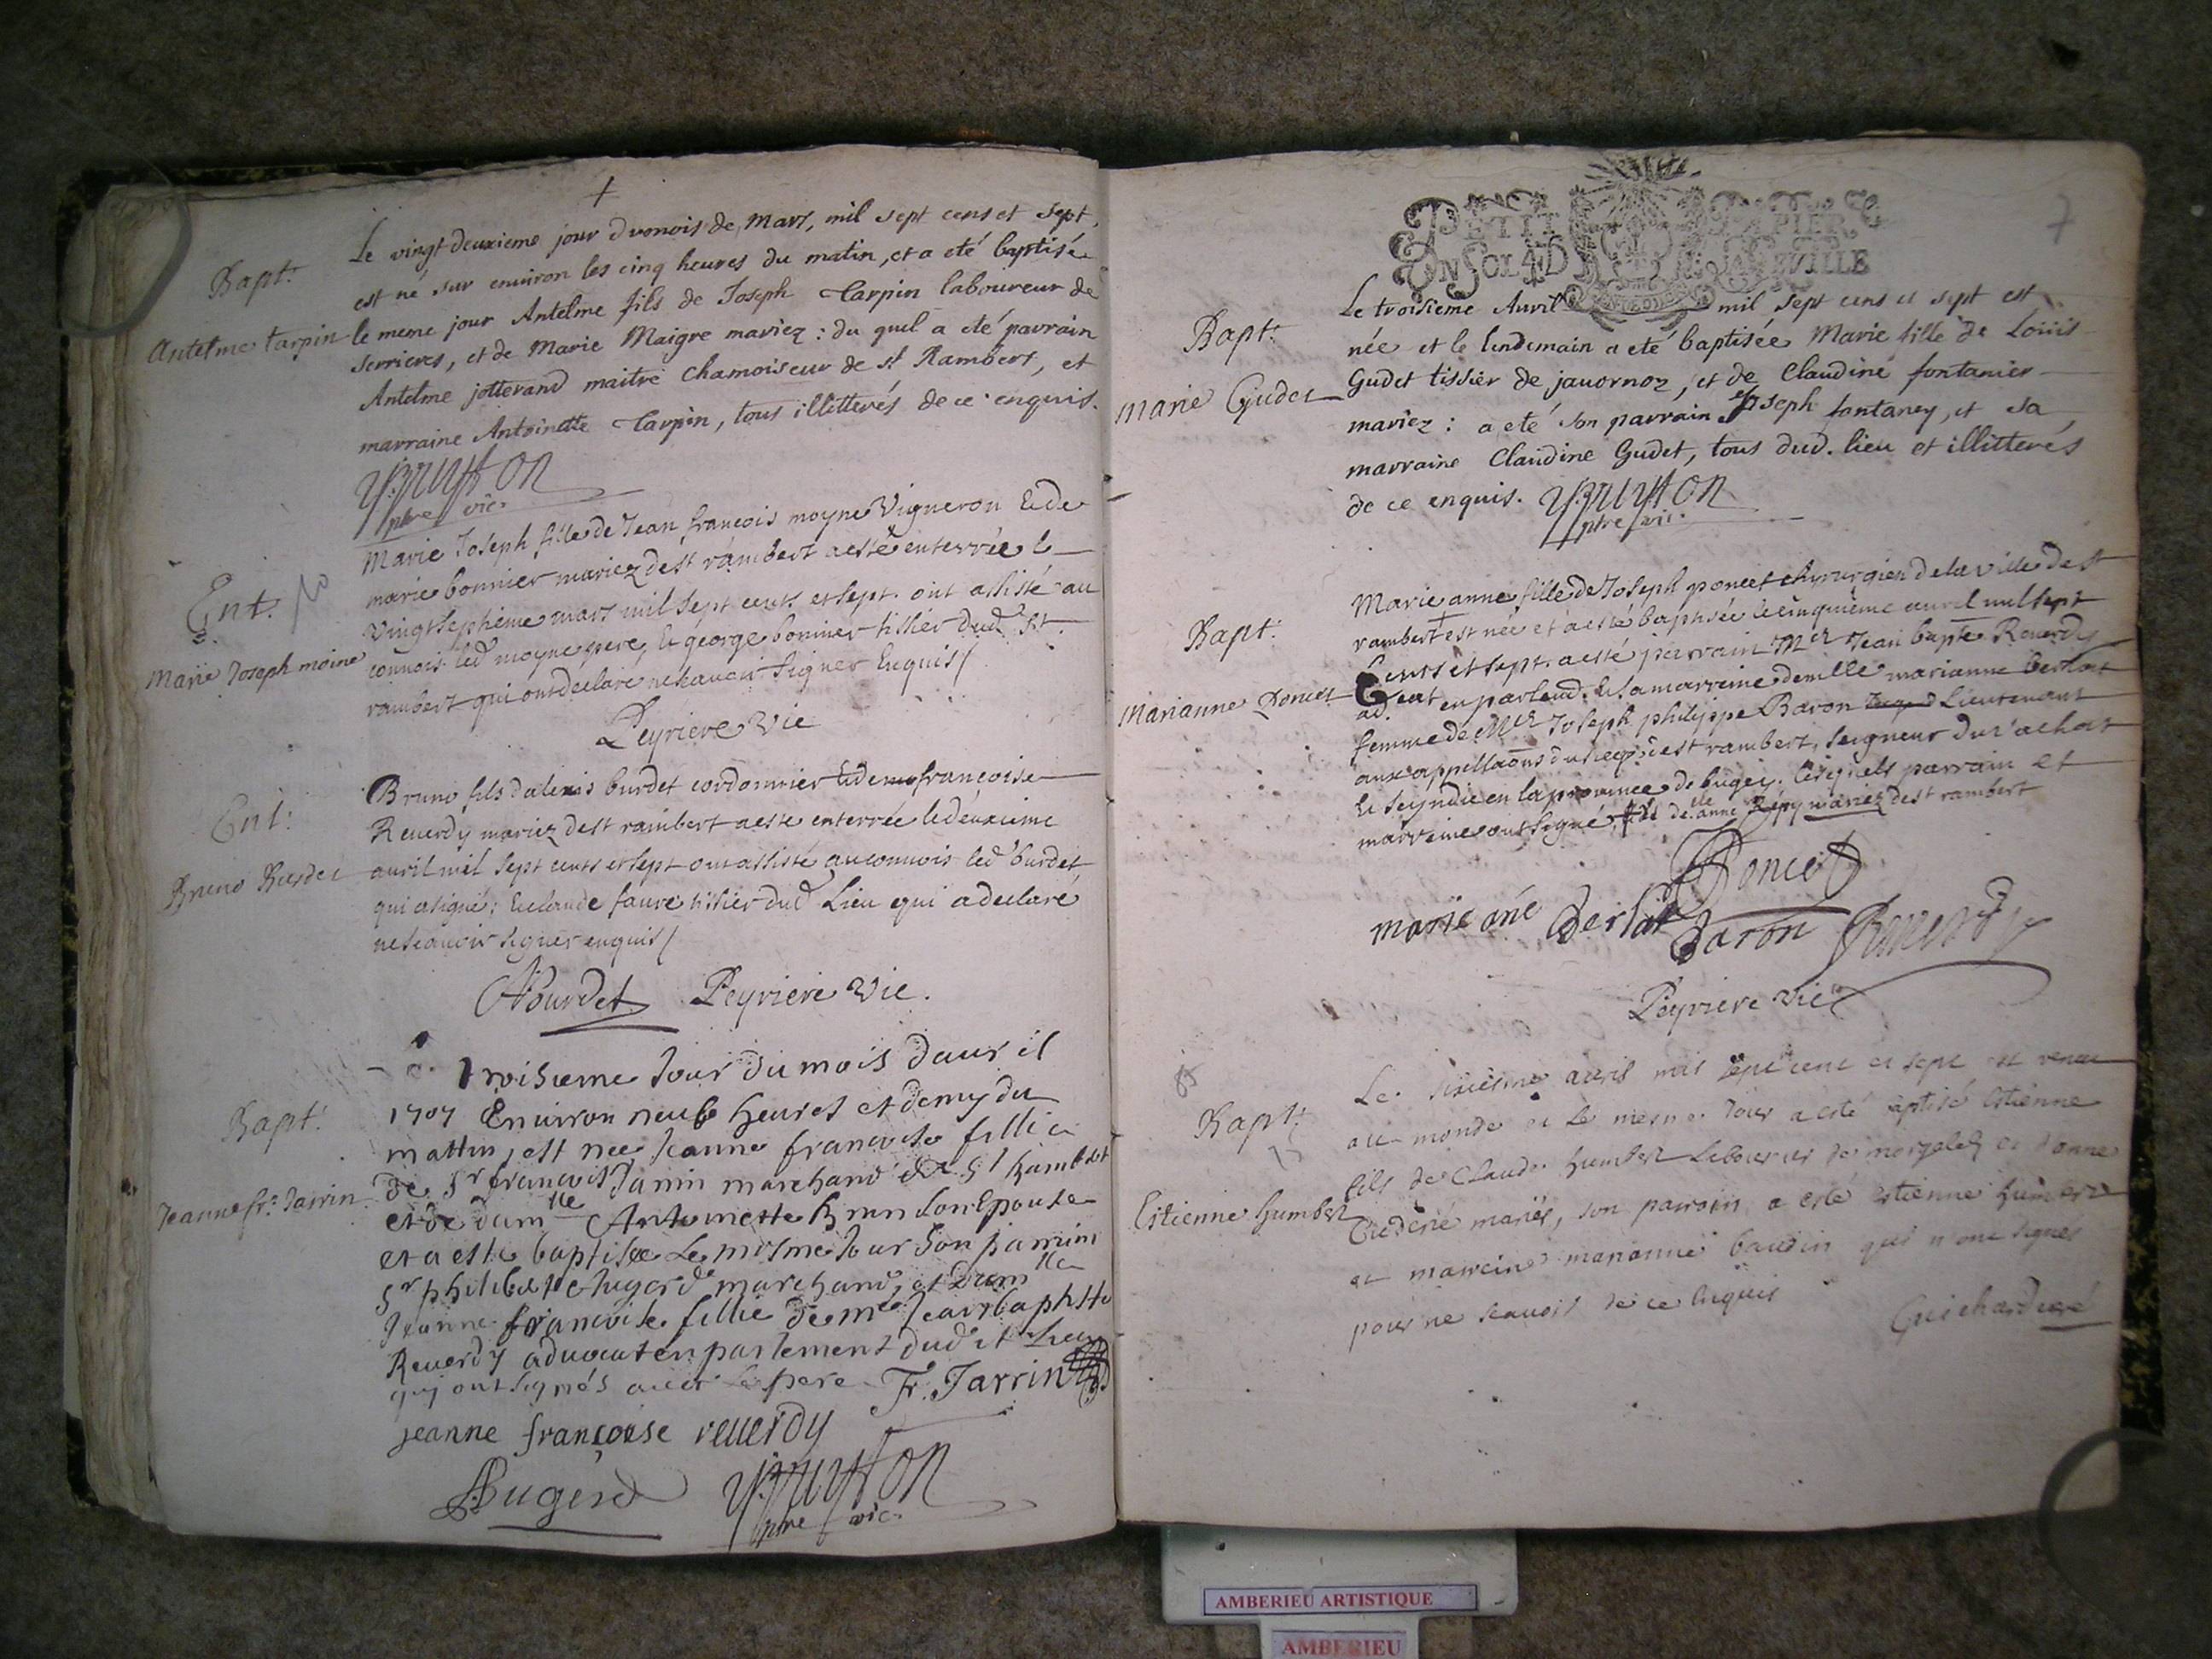 +
Le vingt deuxieme jour du mois de Mars, mil sept cens et sept,
est né sur environ les cinq heures du matin, et a eté baptisé
Bapt.
Antelme tarpin
le meme jour Antelme fils de Joseph tarpin laboureur de
serrieres, et de Marie Maigre mariez : du quel a eté parrain
Antelme jotterand maitre chamoiseur de st Rambert, et
marraine Antoinette tarpin, tous illitterés de ce enquis.
ptre vic.
Marie Joseph fille de Jean francois moyne Vigneron & de
marie bonnier mariez de st rambert a esté enterrée le
Ent.
Marie Joseph moine
vingt septieme mars mil sept cents et sept. ont assisté au
connois led moyne pere, & george bonnier tissier dud st
rambert qui ont declaré ne scavoir signer Enquis /
Peyriere Vic
Bruno fils dalexis burdet cordonnier & de françoise
Ent:
Bruno Burdet
Reuerdy mariez de st rambert a esté enterrée le deuxieme
auril mil sept cents et sept ont assisté au connois led burdet,
qui a signé; & claude faure tissier dud Lieu qui a declaré
ne scauoir signer enquis /
Bourdet Peyriere Vic.
troisieme Jour du mois daur il
1707 Enuiron neuf heures et demy du
Bapt.
Jeanne fr. Jarrin
mattin, est nee Jeanne francoise fillie
de Sr francois Jarrin marchand de St Rambert
et de dam lle Antoinette Brun son Epouse
et a este baptisee Le mesme Jour Son parrin
Sr philibert Augerd marchand, et Dam lle
Jeanne francoise fillie de me Jean baptiste
Reuerdy aduocat en parlement dud it Lieu
qui ont signés auec le pere Fr. Jarrin
jeanne françoise reuerdy
Augerd
ptre vic.
7
PETIT PAPIER
UN SOL 4 D LA FEVILLE
Le troisieme Auril mil sept cens et sept est
Bapt.
Marie Gudet
née et le lendemain a eté baptisée Marie fille de Louis
Gudet tissier de jauornoz, et de Claudine fontanier
mariez : a eté son parrain Joseph fontaney, et sa
marraine Claudine Gudet, tous dud. lieu et illitterés
de ce enquis.
ptre vic.
Marie anne fille de Joseph poncet chyrurgien de la ville de st
Bapt.
Marianne Poncet
rambert est née et a esté baptisée le cinquième auril mil sept
cents et sept. a esté parrain Mer Jean bapte Reuerdy
ad cat en parlemt. & sa marreine demlle marianne berliat
femme de Mer Joseph philippe Baron Lieutenant
aux appellaons de st rambert, seigneur du
& scyndic en la prouince de bugey. lesquels parrain et
marreine ont signé, & de anne mariez de st rambert
Poncet
marie ané berliat baron Reuerdy
Peyriere Vic
Le sixiesme auril mil sept cent et sept est venu
Bapt.
Estienne humbert
au monde et le mesme Jour a esté baptisé Estienne
fils de Claude humbert Laboureur de et
mariés, son parrain a esté estienne humbert
et marreine marianne baudin qui n ont signés
pour ne scauoir de ce Enquis
Guichard curé
AMBERIEU ARTISTIQUE
AMBERIEU